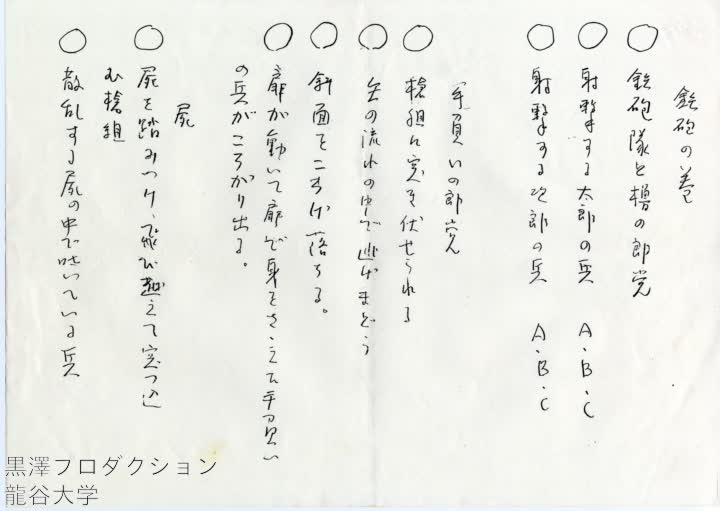 鉄砲の巻
鉄砲隊と櫓の郎党
射撃する太郎の兵 A・B・C
射撃する次郎の兵 A・B・C
手負いの郎党
槍組に突き伏せられる
矢の流れの中で逃げまどう
斜面をころげ落ちる。
扉が動いて扉で身をさゝえた手負い
の兵がころがり出る。
屍
屍を踏みつけ、飛び越えて突っ込
む槍組
散乱する屍の中で呻いている兵
黒澤プロダクション
龍谷大学